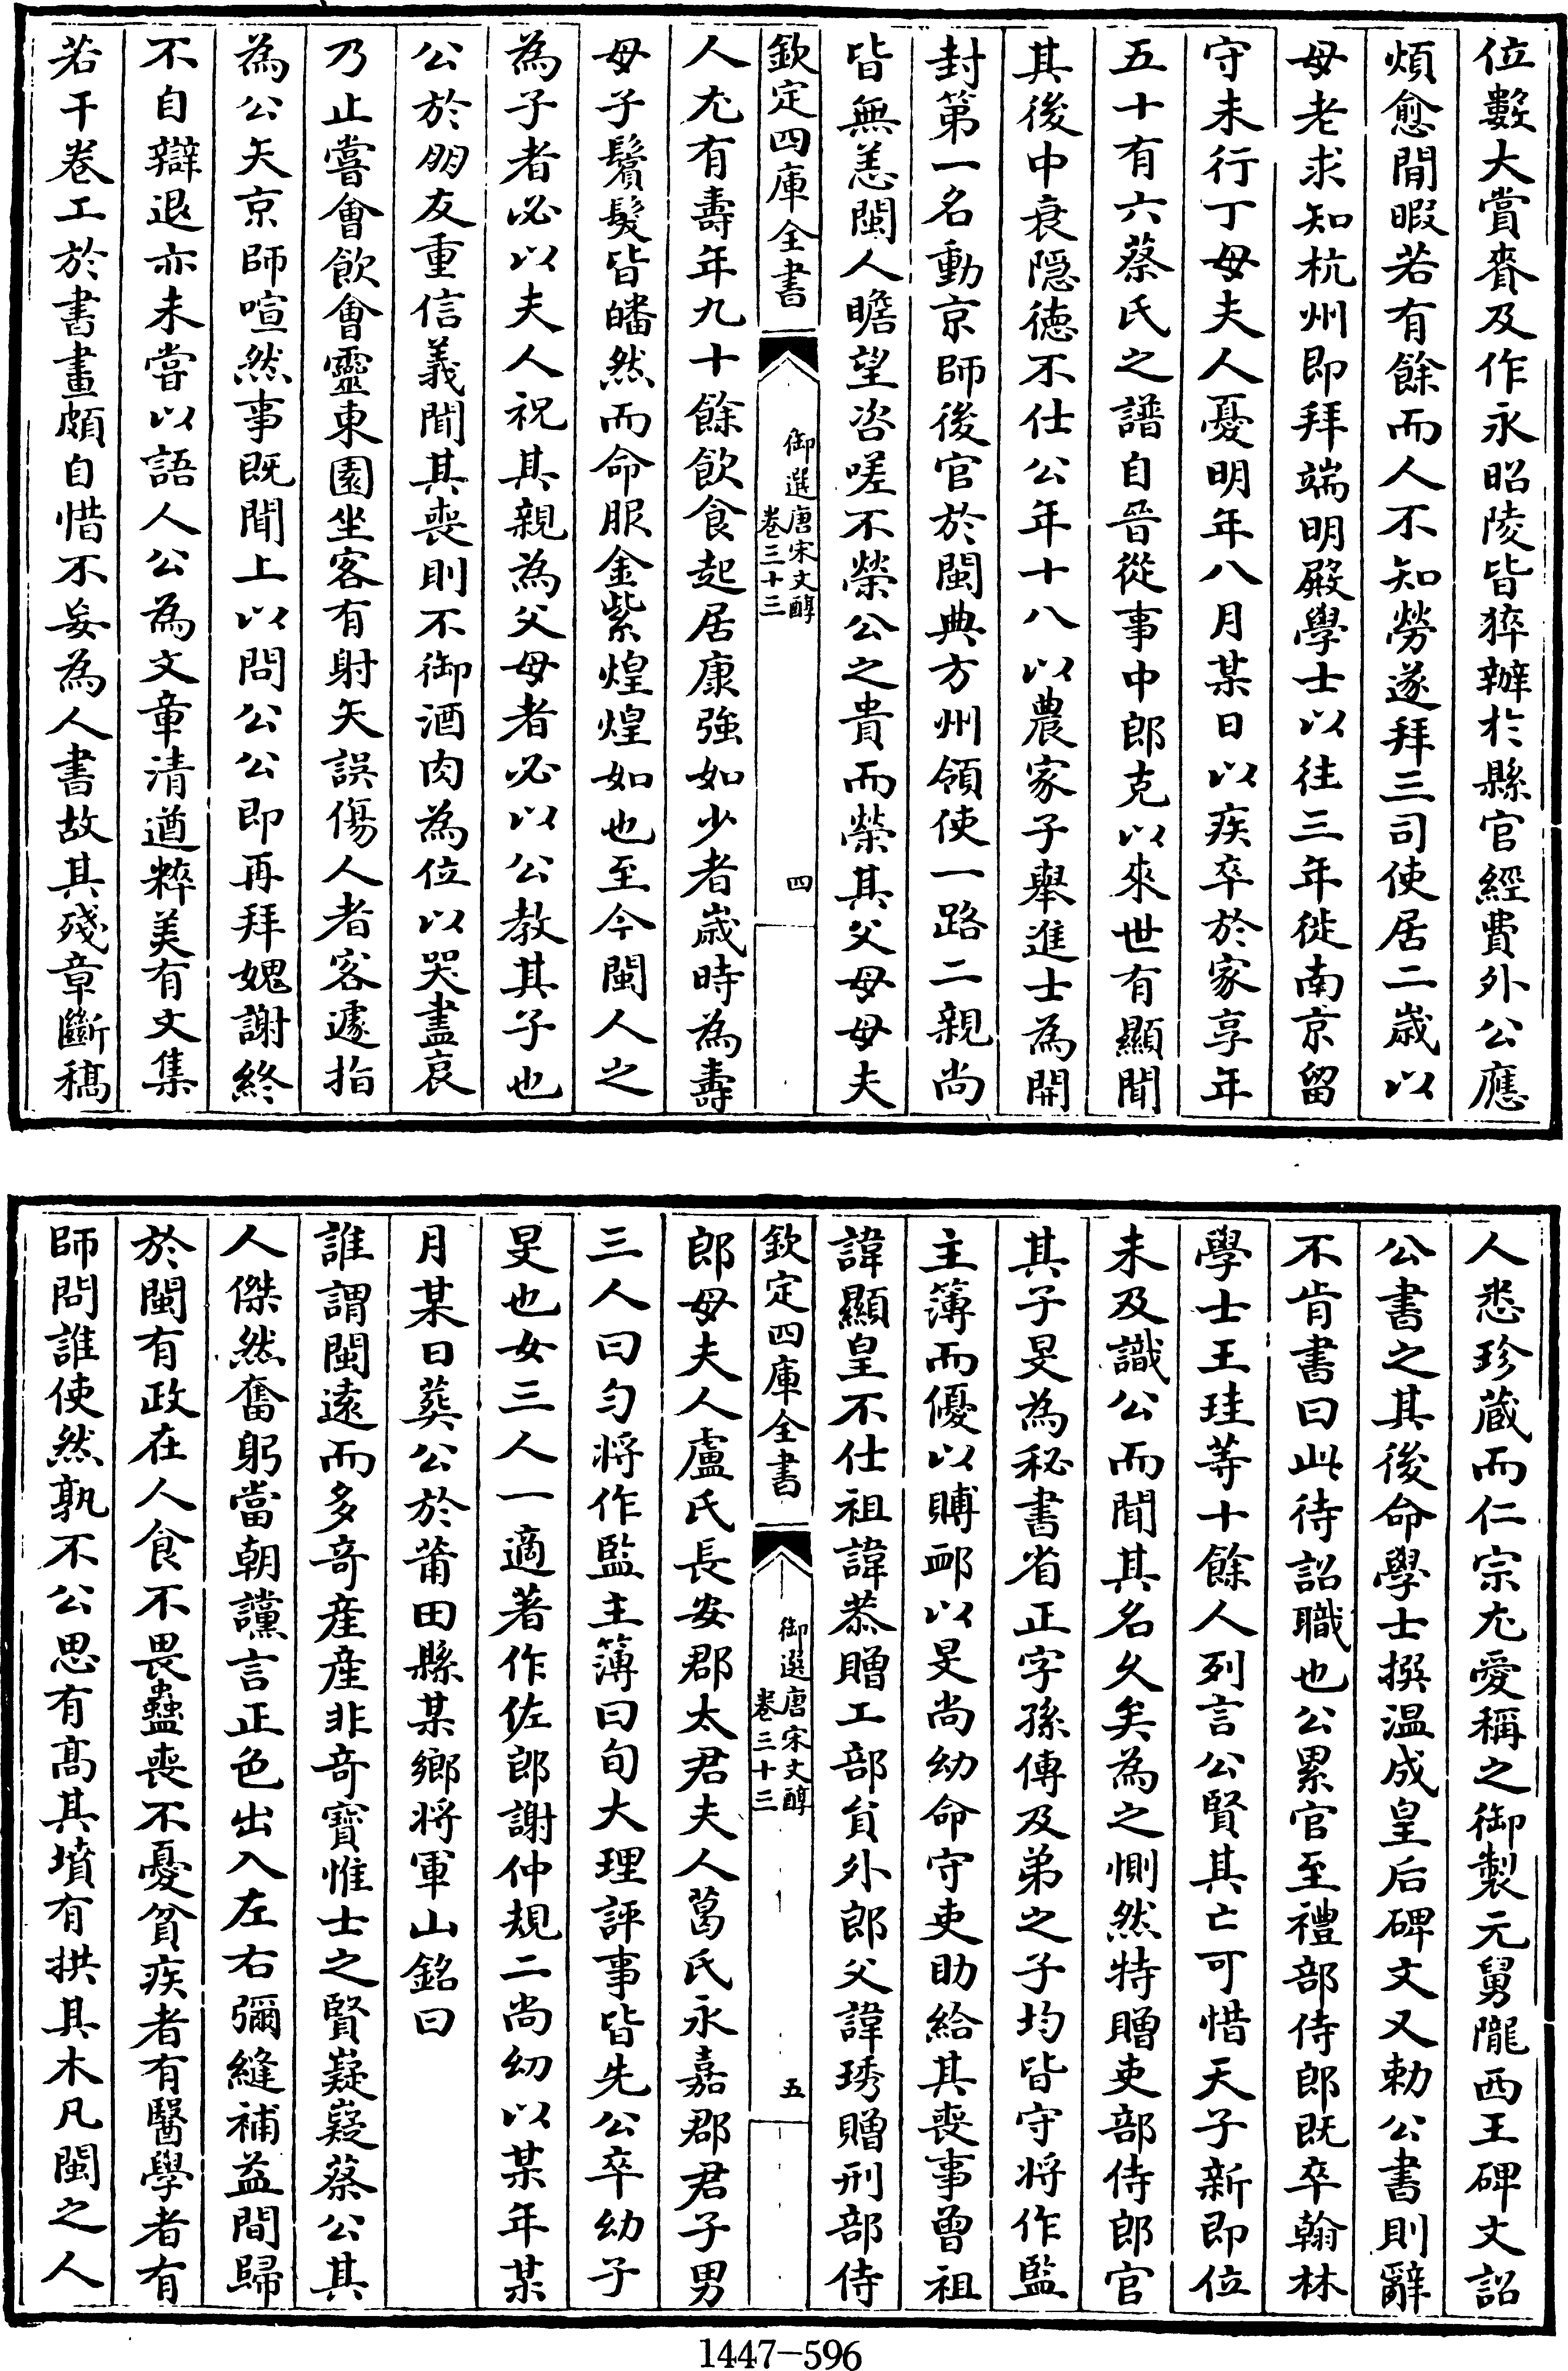 位數大賞賚及作永昭陵皆猝辦於縣官經費外公應
煩愈閒暇若有餘而人不知勞遂拜三司使居二歲以
母老求知杭州即拜端明殿學士以往三年徙南京留
守未行丁母夫人憂明年八月某日以疾卒於家享年
五十有六蔡氏之譜自晉從事中郎克以來世有顯聞
其後中衰隠德不仕公年十八以農家子舉進士為開
封第一名動京師後官於閩典方州領使一路二親尚
皆無恙閩人瞻望咨嗟不榮公之貴而榮其父母母夫
欽定四庫全書
御選唐宋文醇
卷三十三
四
人尤有壽年九十餘飲食起居康強如少者歲時為壽
母子鬢髮皆皤然而命服金紫煌煌如也至今閩人之
為子者必以夫人祝其親為父母者必以公教其子也
公於朋友重信義聞其喪則不御酒肉為位以哭盡哀
乃止嘗會飲會靈東園坐客有射矢誤傷人者客遽指
為公矢京師喧然事既聞上以問公公即再拜媿謝終
不自辯退亦未嘗以語人公為文章清遒粹美有文集
若干卷工於書畫頗自惜不妄為人書故其殘章斷稿
人悉珍藏而仁宗尤愛稱之御製元舅隴西王碑文詔
公書之其後命學士撰温成皇后碑文又勅公書則辭
不肯書曰此待詔職也公累官至禮部侍郎既卒翰林
學士王珪等十餘人列言公賢其亡可惜天子新即位
未及識公而聞其名久矣為之惻然特贈吏部侍郎官
其子旻為秘書省正字孫傳及弟之子均皆守將作監
主簿而優以賻䘏以旻尚幼命守吏助給其喪事曾祖
諱顯皇不仕祖諱恭贈工部貟外郎父諱琇贈刑部侍
欽定四庫全書
御選唐宋文醇
卷三十三
五
郎母夫人盧氏長安郡太君夫人葛氏永嘉郡君子男
三人曰勻將作監主簿曰旬大理評事皆先公卒幼子
旻也女三人一適著作佐郎謝仲規二尚幼以某年某
月某日葬公於莆田縣某鄉將軍山銘曰
誰謂閩遠而多竒產產非竒寶惟士之賢嶷嶷蔡公其
人傑然奮躬當朝讜言正色出入左右彌縫補益間歸
於閩有政在人食不畏蠱喪不憂貧疾者有醫學者有
師問誰使然孰不公思有髙其墳有拱其木凡閩之人
1447-596